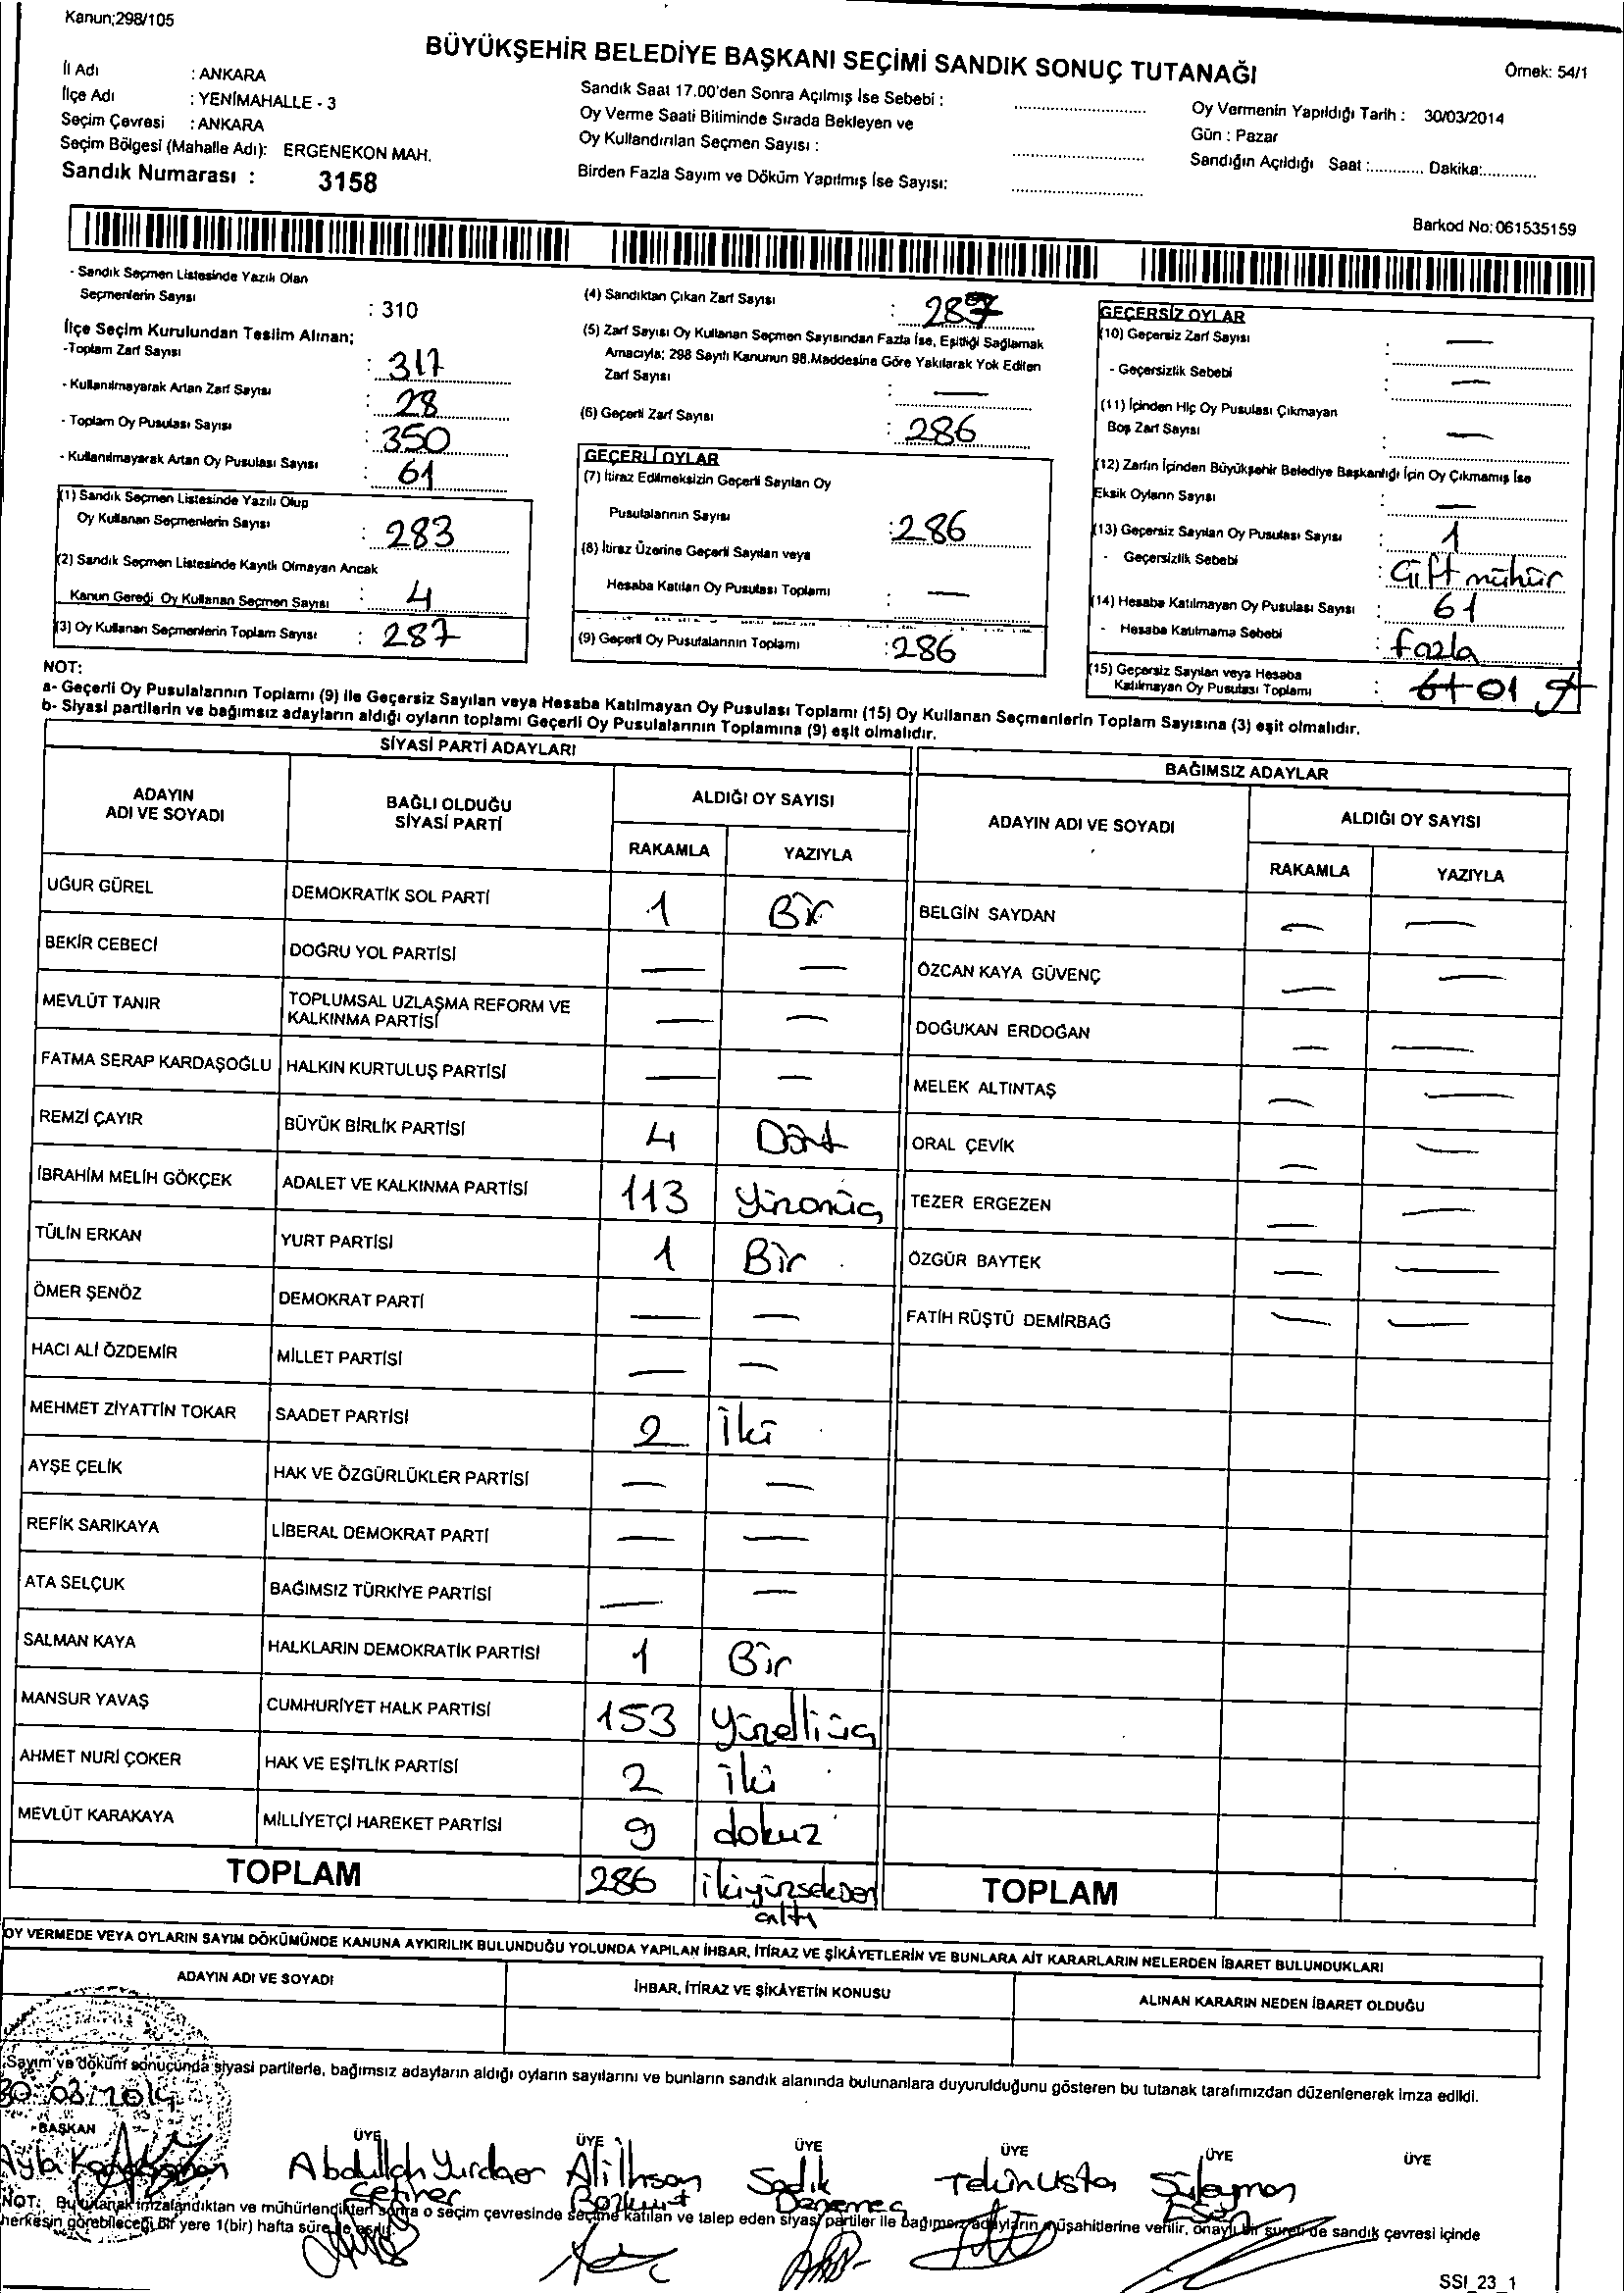 Kanun;298/105
BÜYÜKŞEHİR BELEDİYE BAŞKANI SEÇİMİ SANDIK SONUÇ TUTANAĞI
Örnek: 54/1
İl Adı : ANKARA
İlçe Adı : YENİMAHALLE - 3
Seçim Çevresi : ANKARA
Seçim Bölgesi (Mahalle Adı): ERGENEKON MAH.
Sandık Numarası : 3158
Sandık Saat 17.00'den Sonra Açılmış İse Sebebi :
Oy Verme Saati Bitiminde Sırada Bekleyen ve
Oy Kullandırılan Seçmen Sayısı :
Birden Fazla Sayım ve Döküm Yapılmış İse Sayısı:
Oy Vermenin Yapıldığı Tarih : 30/03/2014
Gün : Pazar
Sandığın Açıldığı Saat :............ Dakika:............
Barkod No: 061535159
- Sandık Seçmen Listesinde Yazılı Olan
Seçmenlerin Sayısı : 310
İlçe Seçim Kurulundan Teslim Alınan;
-Toplam Zarf Sayısı : 317
- Kullanılmayarak Artan Zarf Sayısı : 28
- Toplam Oy Pusulası Sayısı : 350
- Kullanılmayarak Artan Oy Pusulası Sayısı : 61
(1) Sandık Seçmen Listesinde Yazılı Olup
Oy Kullanan Seçmenlerin Sayısı : 283
(2) Sandık Seçmen Listesinde Kayıtlı Olmayan Ancak
Kanun Gereği Oy Kullanan Seçmen Sayısı : 4
(3) Oy Kullanan Seçmenlerin Toplam Sayısı : 287
(4) Sandıktan Çıkan Zarf Sayısı : 287
(5) Zarf Sayısı Oy Kullanan Seçmen Sayısından Fazla İse, Eşitliği Sağlamak
Amacıyla; 298 Sayılı Kanunun 98.Maddesine Göre Yakılarak Yok Edilen
Zarf Sayısı : —
(6) Geçerli Zarf Sayısı : 286
GEÇERLİ OYLAR
(7) İtiraz Edilmeksizin Geçerli Sayılan Oy
Pusulalarının Sayısı : 286
(8) İtiraz Üzerine Geçerli Sayılan veya
Hesaba Katılan Oy Pusulası Toplamı : —
(9) Geçerli Oy Pusulalarının Toplamı : 286
GEÇERSİZ OYLAR
(10) Geçersiz Zarf Sayısı : —
- Geçersizlik Sebebi : —
(11) İçinden Hiç Oy Pusulası Çıkmayan
Boş Zarf Sayısı : —
(12) Zarfın İçinden Büyükşehir Belediye Başkanlığı İçin Oy Çıkmamış İse
Eksik Oyların Sayısı : —
(13) Geçersiz Sayılan Oy Pusulası Sayısı : 1
- Geçersizlik Sebebi : Çift mühür
(14) Hesaba Katılmayan Oy Pusulası Sayısı : 61
- Hesaba Katılmama Sebebi : fazla
(15) Geçersiz Sayılan veya Hesaba
Katılmayan Oy Pusulası Toplamı : 61 01
NOT:
a- Geçerli Oy Pusulalarının Toplamı (9) ile Geçersiz Sayılan veya Hesaba Katılmayan Oy Pusulası Toplamı (15) Oy Kullanan Seçmenlerin Toplam Sayısına (3) eşit olmalıdır.
b- Siyasi partilerin ve bağımsız adayların aldığı oyların toplamı Geçerli Oy Pusulalarının Toplamına (9) eşit olmalıdır.
SİYASİ PARTİ ADAYLARI
ADAYIN ADI VE SOYADI
BAĞLI OLDUĞU SİYASİ PARTİ
ALDIĞI OY SAYISI
RAKAMLA YAZIYLA
UĞUR GÜREL DEMOKRATİK SOL PARTİ 1 Bir
BEKİR CEBECİ DOĞRU YOL PARTİSİ — —
MEVLÜT TANIR TOPLUMSAL UZLAŞMA REFORM VE KALKINMA PARTİSİ — —
FATMA SERAP KARDAŞOĞLU HALKIN KURTULUŞ PARTİSİ — —
REMZİ ÇAYIR BÜYÜK BİRLİK PARTİSİ 4 Dört
İBRAHİM MELİH GÖKÇEK ADALET VE KALKINMA PARTİSİ 113 yüzonüç
TÜLİN ERKAN YURT PARTİSİ 1 Bir
ÖMER ŞENÖZ DEMOKRAT PARTİ — —
HACI ALİ ÖZDEMİR MİLLET PARTİSİ — —
MEHMET ZİYATTİN TOKAR SAADET PARTİSİ 2 İki
AYŞE ÇELİK HAK VE ÖZGÜRLÜKLER PARTİSİ — —
REFİK SARIKAYA LİBERAL DEMOKRAT PARTİ — —
ATA SELÇUK BAĞIMSIZ TÜRKİYE PARTİSİ — —
SALMAN KAYA HALKLARIN DEMOKRATİK PARTİSİ 1 Bir
MANSUR YAVAŞ CUMHURİYET HALK PARTİSİ 153 yüzelliüç
AHMET NURİ ÇOKER HAK VE EŞİTLİK PARTİSİ 2 iki
MEVLÜT KARAKAYA MİLLİYETÇİ HAREKET PARTİSİ 9 dokuz
TOPLAM 286 ikiyüzseksen altı
BAĞIMSIZ ADAYLAR
ADAYIN ADI VE SOYADI
ALDIĞI OY SAYISI
RAKAMLA YAZIYLA
BELGİN SAYDAN — —
ÖZCAN KAYA GÜVENÇ — —
DOĞUKAN ERDOĞAN — —
MELEK ALTINTAŞ — —
ORAL ÇEVİK — —
TEZER ERGEZEN — —
ÖZGÜR BAYTEK — —
FATİH RÜŞTÜ DEMİRBAĞ — —
TOPLAM
OY VERMEDE VEYA OYLARIN SAYIM DÖKÜMÜNDE KANUNA AYKIRILIK BULUNDUĞU YOLUNDA YAPILAN İHBAR, İTİRAZ VE ŞİKÂYETLERİN VE BUNLARA AİT KARARLARIN NELERDEN İBARET BULUNDUKLARI
ADAYIN ADI VE SOYADI
İHBAR, İTİRAZ VE ŞİKÂYETİN KONUSU
ALINAN KARARIN NEDEN İBARET OLDUĞU
Sayım ve döküm sonucunda siyasi partilerle, bağımsız adayların aldığı oyların sayılarını ve bunların sandık alanında bulunanlara duyurulduğunu gösteren bu tutanak tarafımızdan düzenlenerek imza edildi.
30.03.2014
BAŞKAN ÜYE ÜYE ÜYE ÜYE ÜYE ÜYE
Ayla
Abdullah Yurdaer Çetiner
Ali İhsan Bozkurt
Sadık
Telün Usta
Süleyman
NOT: Bu tutanak imzalandıktan ve mühürlendikten sonra o seçim çevresinde seçime katılan ve talep eden siyasi partiler ile bağımsız adayların müşahitlerine verilir, onaylı bir sureti de sandık çevresi içinde
herkesin görebileceği bir yere 1(bir) hafta süre ile asılır.
SSI_23_1